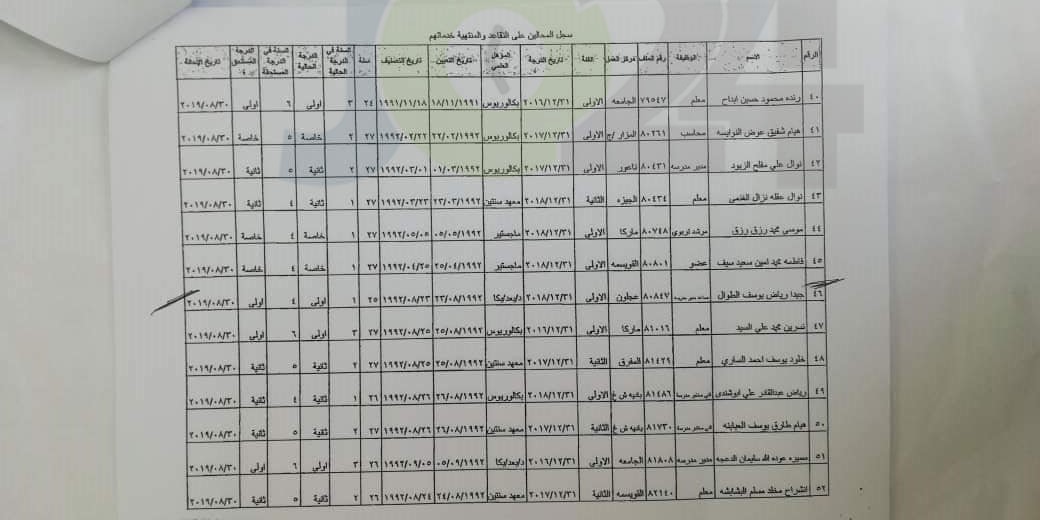 سجل المحالين على التقاعد والمنتهية خدماتهم
الرقم الاسم الوظيفة رقم الملف مركز العمل الفئة تاريخ الدرجة المؤهل العلمي تاريخ التعيين تاريخ التصنيف سنة السنة في الدرجة الحالية الدرجة الحالية السنة في الدرجة المستحقة الدرجة المستحق تاريخ الاحالة
٤٠ رنده محمود حسين ابداح معلم ٧٩٥٤٧ الجامعه الاولى ٢٠١٦/١٢/٣١ بكالوريوس ١٨/١١/١٩٩١ ١٩٩١/١١/١٨ ٢٤ ٣ اولى ٦ اولى ٢٠١٩/٠٨/٣٠
٤١ هيام شفيق عوض النوايسه محاسب ٨٠٢٦١ المزار /ج الاولى ٢٠١٧/١٢/٣١ بكالوريوس ٢٢/٠٢/١٩٩٢ ١٩٩٢/٠٢/٢٢ ٢٧ ٢ خاصة ٥ خاصة ٢٠١٩/٠٨/٣٠
٤٢ نوال علي مفلح الزيود مدير مدرسه ٨٠٤٣١ ناعور الاولى ٢٠١٧/١٢/٣١ بكالوريوس ٠١/٠٣/١٩٩٢ ١٩٩٢/٠٣/٠١ ٢٧ ٢ ثانية ٥ ثانية ٢٠١٩/٠٨/٣٠
٤٣ نوال عقله نزال الغنمي معلم ٨٠٤٣٤ الجيزه الثانية ٢٠١٨/١٢/٣١ معهد سنتين ٢٣/٠٣/١٩٩٢ ١٩٩٢/٠٣/٢٣ ٢٧ ١ ثانية ٤ ثانية ٢٠١٩/٠٨/٣٠
٤٤ موسى محمد رزق رزق مرشد تربوي ٨٠٧٤٨ ماركا الاولى ٢٠١٨/١٢/٣١ ماجستير ٠٥/٠٥/١٩٩٢ ١٩٩٢/٠٥/٠٥ ٢٧ ١ خاصة ٤ خاصة ٢٠١٩/٠٨/٣٠
٤٥ فاطمه محمد امين سعيد سيف عضو ٨٠٨٠١ القويسمه الاولى ٢٠١٨/١٢/٣١ ماجستير ٢٥/٠٤/١٩٩٢ ١٩٩٢/٠٤/٢٥ ٢٧ ١ خاصة ٤ خاصة ٢٠١٩/٠٨/٣٠
٤٦ جيدا رياض يوسف الطوال ٨٠٨٤٧ عجلون الاولى ٢٠١٨/١٢/٣١ ٢٣/٠٨/١٩٩٢ ١٩٩٢/٠٨/٢٣ ٢٥ ١ اولى ٤ اولى ٢٠١٩/٠٨/٣٠
٤٧ نسرين محمد علي السيد معلم ٨١٠١٦ ماركا الاولى ٢٠١٦/١٢/٣١ بكالوريوس ٢٥/٠٨/١٩٩٢ ١٩٩٢/٠٨/٢٥ ٢٧ ٣ اولى ٦ اولى ٢٠١٩/٠٨/٣٠
٤٨ خلود يوسف احمد الساري معلم ٨١٤٢٩ المفرق الثانية ٢٠١٧/١٢/٣١ معهد سنتين ٢٥/٠٨/١٩٩٢ ١٩٩٢/٠٨/٢٥ ٢٧ ٢ ثانية ٥ ثانية ٢٠١٩/٠٨/٣٠
٤٩ رياض عبدالقادر علي ابوشندي ٨١٤٨٦ باديه ش غ الاولى ٢٠١٨/١٢/٣١ بكالوريوس ٢٦/٠٨/١٩٩٢ ١٩٩٢/٠٨/٢٦ ٢٦ ١ ثانية ٤ ثانية ٢٠١٩/٠٨/٣٠
٥٠ هيام طارق يوسف العبابنه ٨١٧٣٠ باديه ش غ الثانية ٢٠١٧/١٢/٣١ معهد سنتين ٢٦/٠٨/١٩٩٢ ١٩٩٢/٠٨/٢٦ ٢٧ ٢ ثانية ٥ ثانية ٢٠١٩/٠٨/٣٠
٥١ سميره عوده الله سليمان الدعجه مدير مدرسه ٨١٨٠٨ الجامعه الاولى ٢٠١٦/١٢/٣١ ٠٥/٠٩/١٩٩٢ ١٩٩٢/٠٩/٠٥ ٢٦ ٣ اولى ٦ اولى ٢٠١٩/٠٨/٣٠
٥٢ انشراح مخلد مسلم البشابشه معلم ٨٢١٤٠ القويسمه الثانية ٢٠١٧/١٢/٣١ معهد سنتين ٢٤/٠٨/١٩٩٢ ١٩٩٢/٠٨/٢٤ ٢٦ ٢ ثانية ٥ ثانية ٢٠١٩/٠٨/٣٠